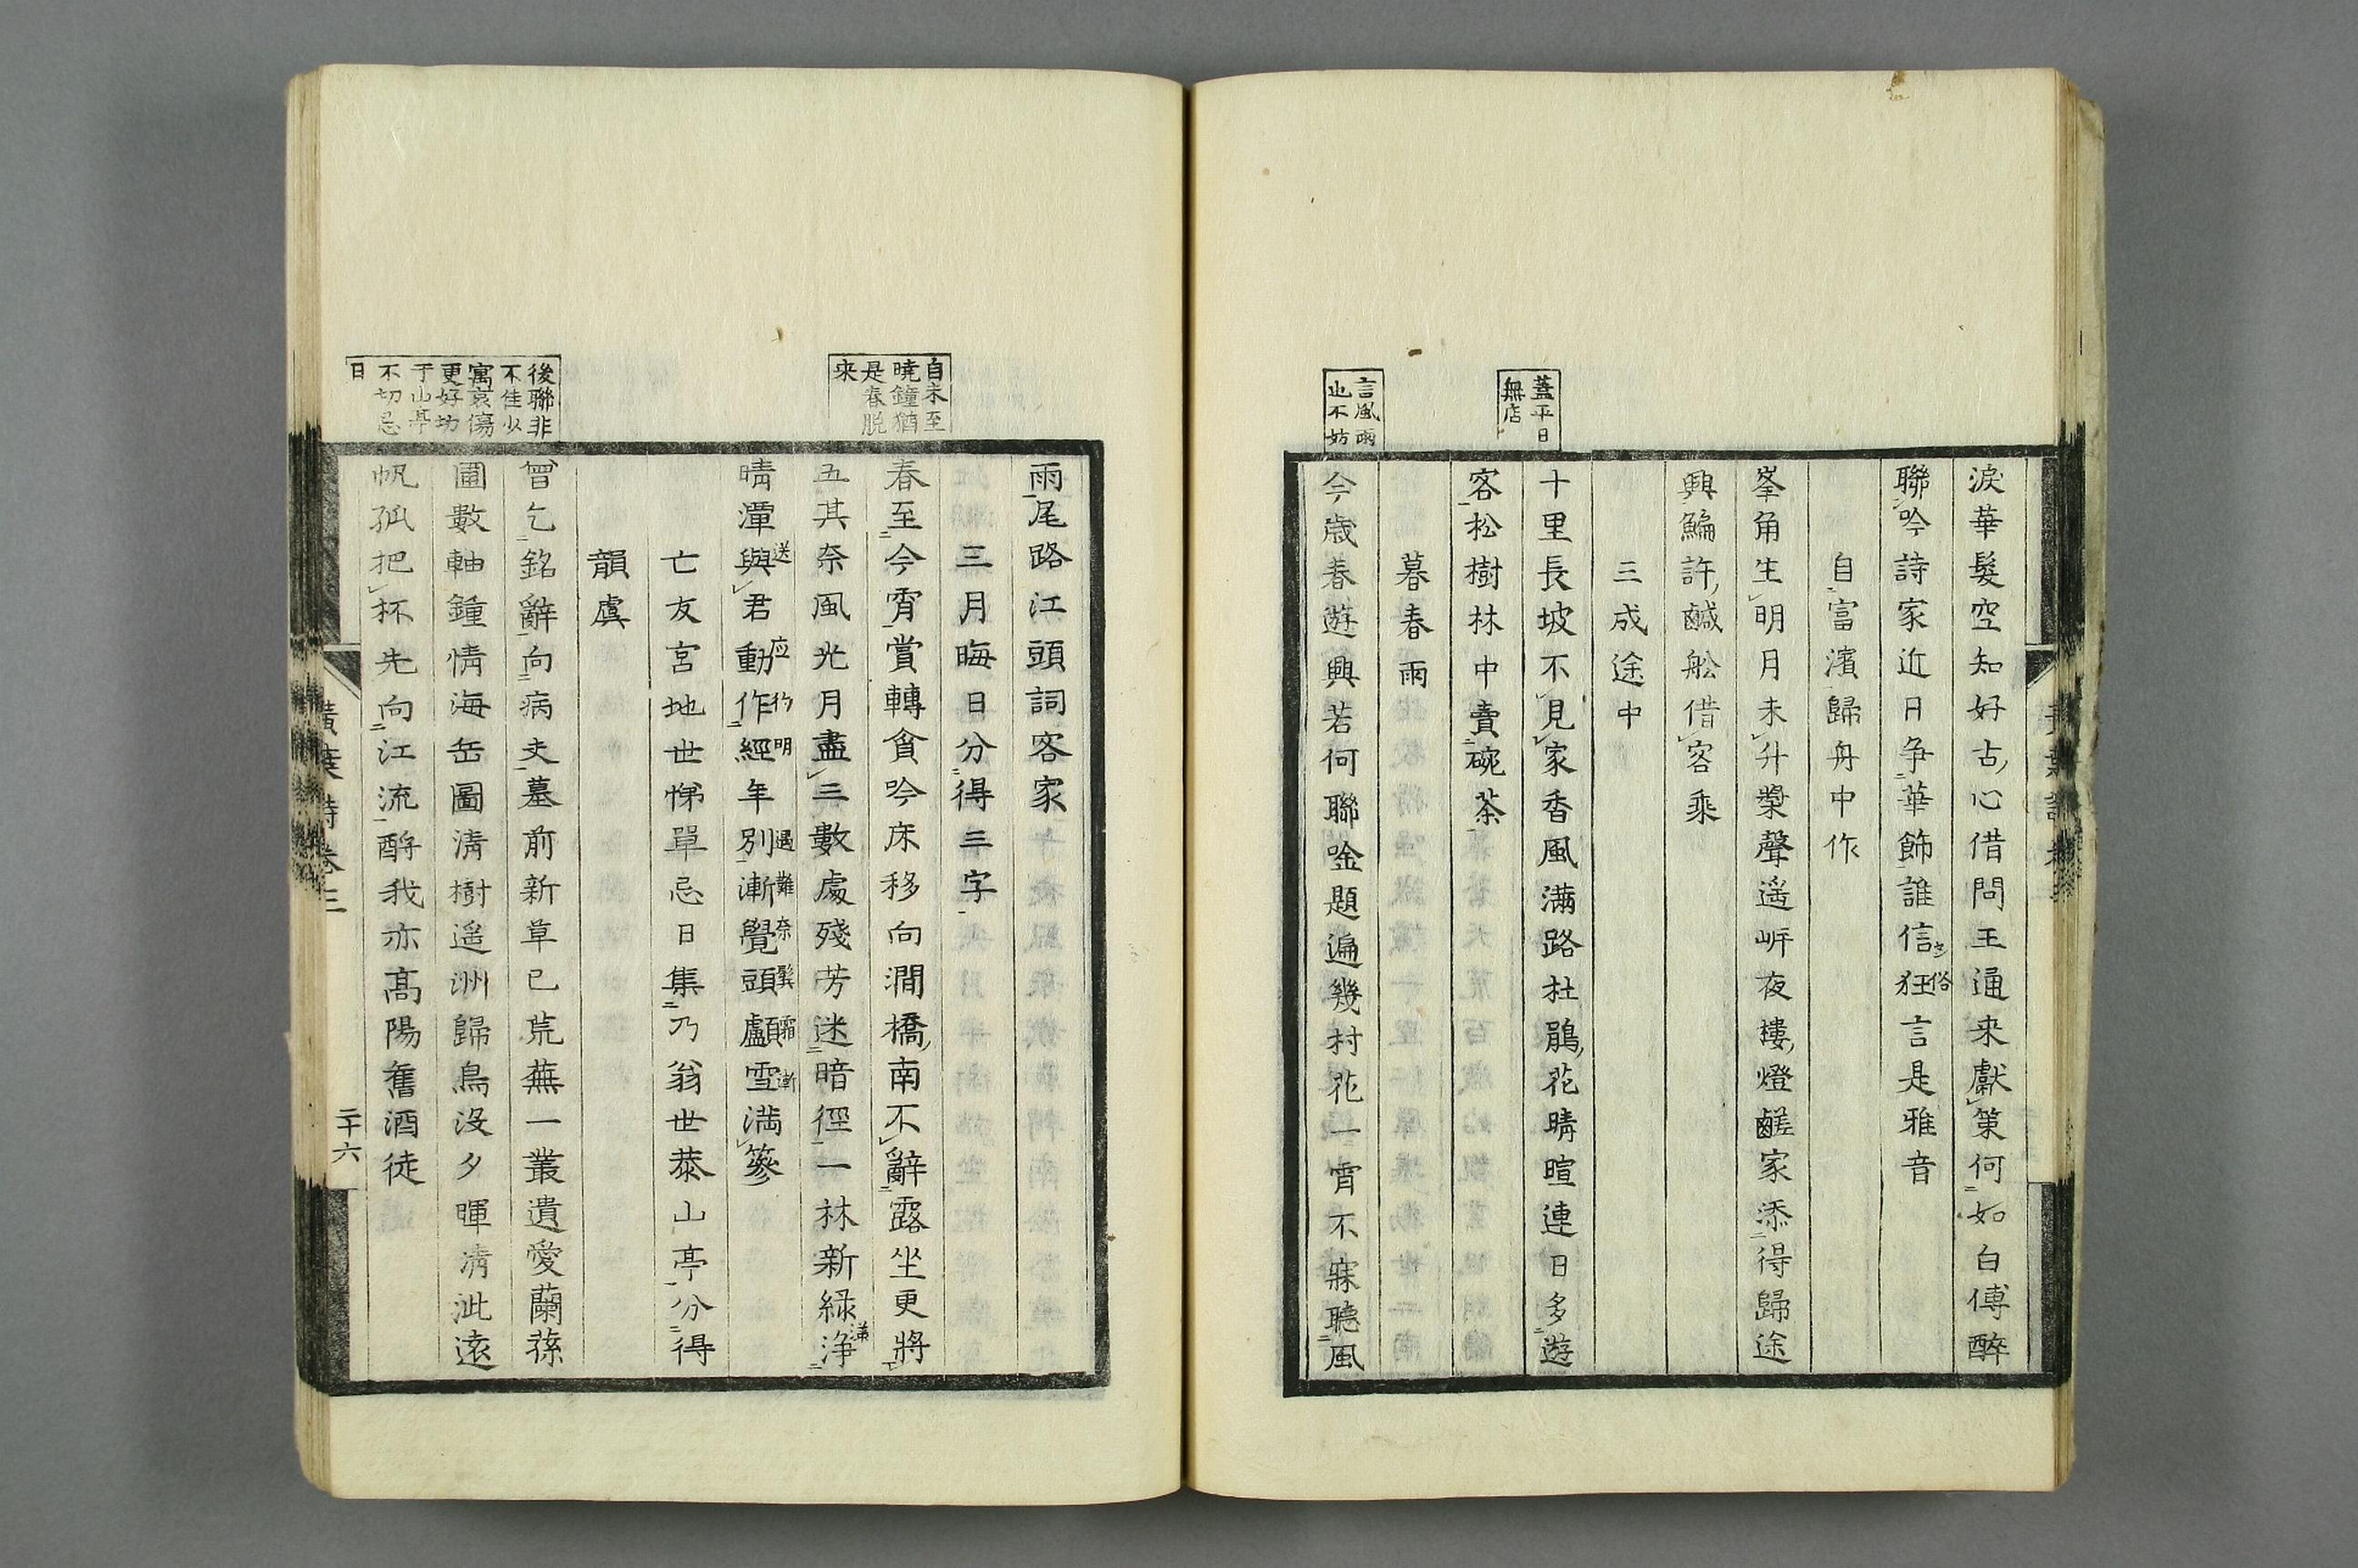 淚華髮空知好古心借問王通来獻策何如白傅醉
聯吟詩家近日争華飾誰信狂言是雅音
自富濱歸舟中作
峯角生明月未升槳聲遥㟁夜樓燈鹺家添得歸途
興鯿許鹹舩借客乘
三成途中
蓋平日
無店
十里長坡不見家香風満路杜鵑花晴暄連日多遊
客松樹林中賣碗茶
暮春雨
言風雨
也不妨
今歳春遊興若何聯唫題遍幾村花一宵不寐聽風
雨尾路江頭詞客家
三月晦日分得三字
自未至
曉鐘猶
是春脱
来
春至今宵賞轉貪吟床移向澗橋南不辭露坐更將
五其奈風光月盡三數處殘芳迷暗徑一林新緑浄
晴潭與君動作經年別漸覺頭顱雪満簪
送 应 行 明 過 難 奈 鬓 霜 漸
亡友宮地世悌單忌日集乃翁世恭山亭分得
韻虞
後聯非
不佳少
寓哀傷
更好坊
于山亭
不切忌
日
曾乞銘辭向病夫墓前新草已荒蕪一叢遺愛蘭蓀
圃數軸鍾情海岳圖清樹遥洲歸鳥没夕暉清泚遠
帆孤把杯先向江流酹我亦髙陽舊酒徒
黄葉詩卷三
二十六